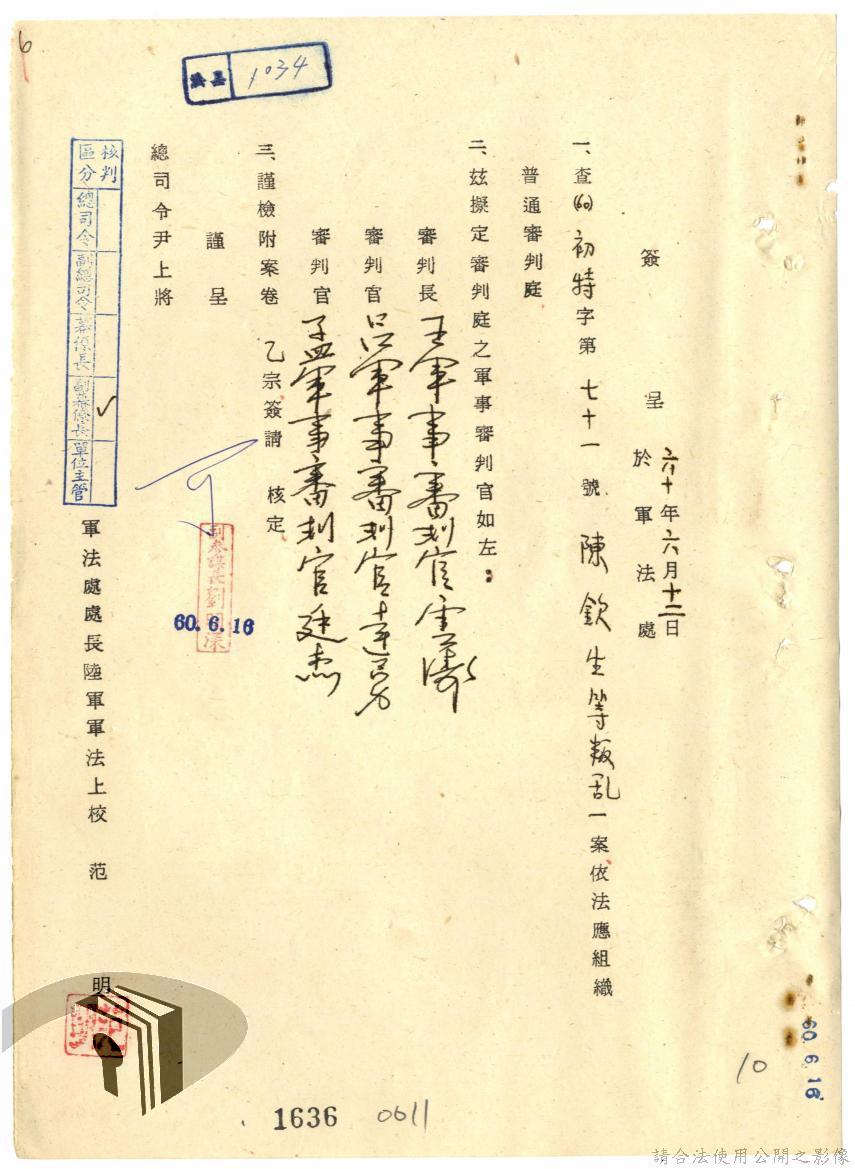 6
1034
簽呈 六十年六月十二日
於軍法處
一、查(60)初特字第七十一號陳欽生等叛乱一案依法應組織
普通審判庭
二、茲擬定審判庭之軍事審判官如左：
審判長 王軍事審判官雲濤
審判官 呂軍事審判官
審判官 孟軍事審判官廷杰
三、謹檢附案卷乙宗簽請 核定
謹呈
總司令尹上將
軍法處處長陸軍軍法上校 范 明
核判區分
總司令
副總司令
幕僚長
副幕僚長 ✓
單位主管
60.6.16
60.6.16
10
1636
0611
請合法使用公開之影像